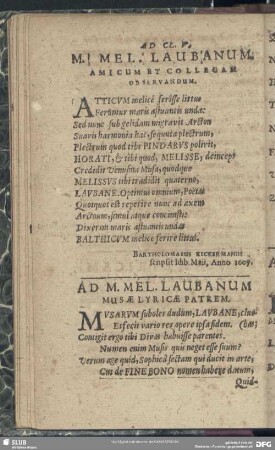 AD CL. V.
M. MEL. LAUBANUM.
AMICUM ET COLLEGAM
OBSERVANDUM.
ATTICVM melicè feriisse littus
Feruntur maris æstuantis undæ:
Sed nunc sub gelidam migravit Arcton
Suavis harmonia hæc, sequuta plectrum,
Plectrum quod tibi PINDARVS polivit,
HORATI, & tibi quod, MELISSE, deinceps
Credidit Venusina Musa, quodque
MELISSVS tibi tradidit quaterno,
LAVBANE. Optimi omnium, Poëtæ
Quotquot est reperire nunc ad axem
Arctoum, simul atque concinistis:
Dixerim maris æstuantis undas
BALTHICVM melicè ferire littus.
BARTHOLOMÆUS KECKERMANN
scripsit Idib. Maii, Anno 1607.
AD M. MEL. LAUBANUM
MUSÆ LYRICÆ PATREM.
MVSARVM suboles dudum, LAVBANE,
Effecit vario res opere ipsa fidem.
Contigit ergo tibi Divas habuisse parentes.
Numen enim Musis quis neget esse suum?
Verum age quid, Sophicâ sectam qui ducit in arte,
Cui de FINE BONO nomen habere datum,
Quid-
SLUB
DFG